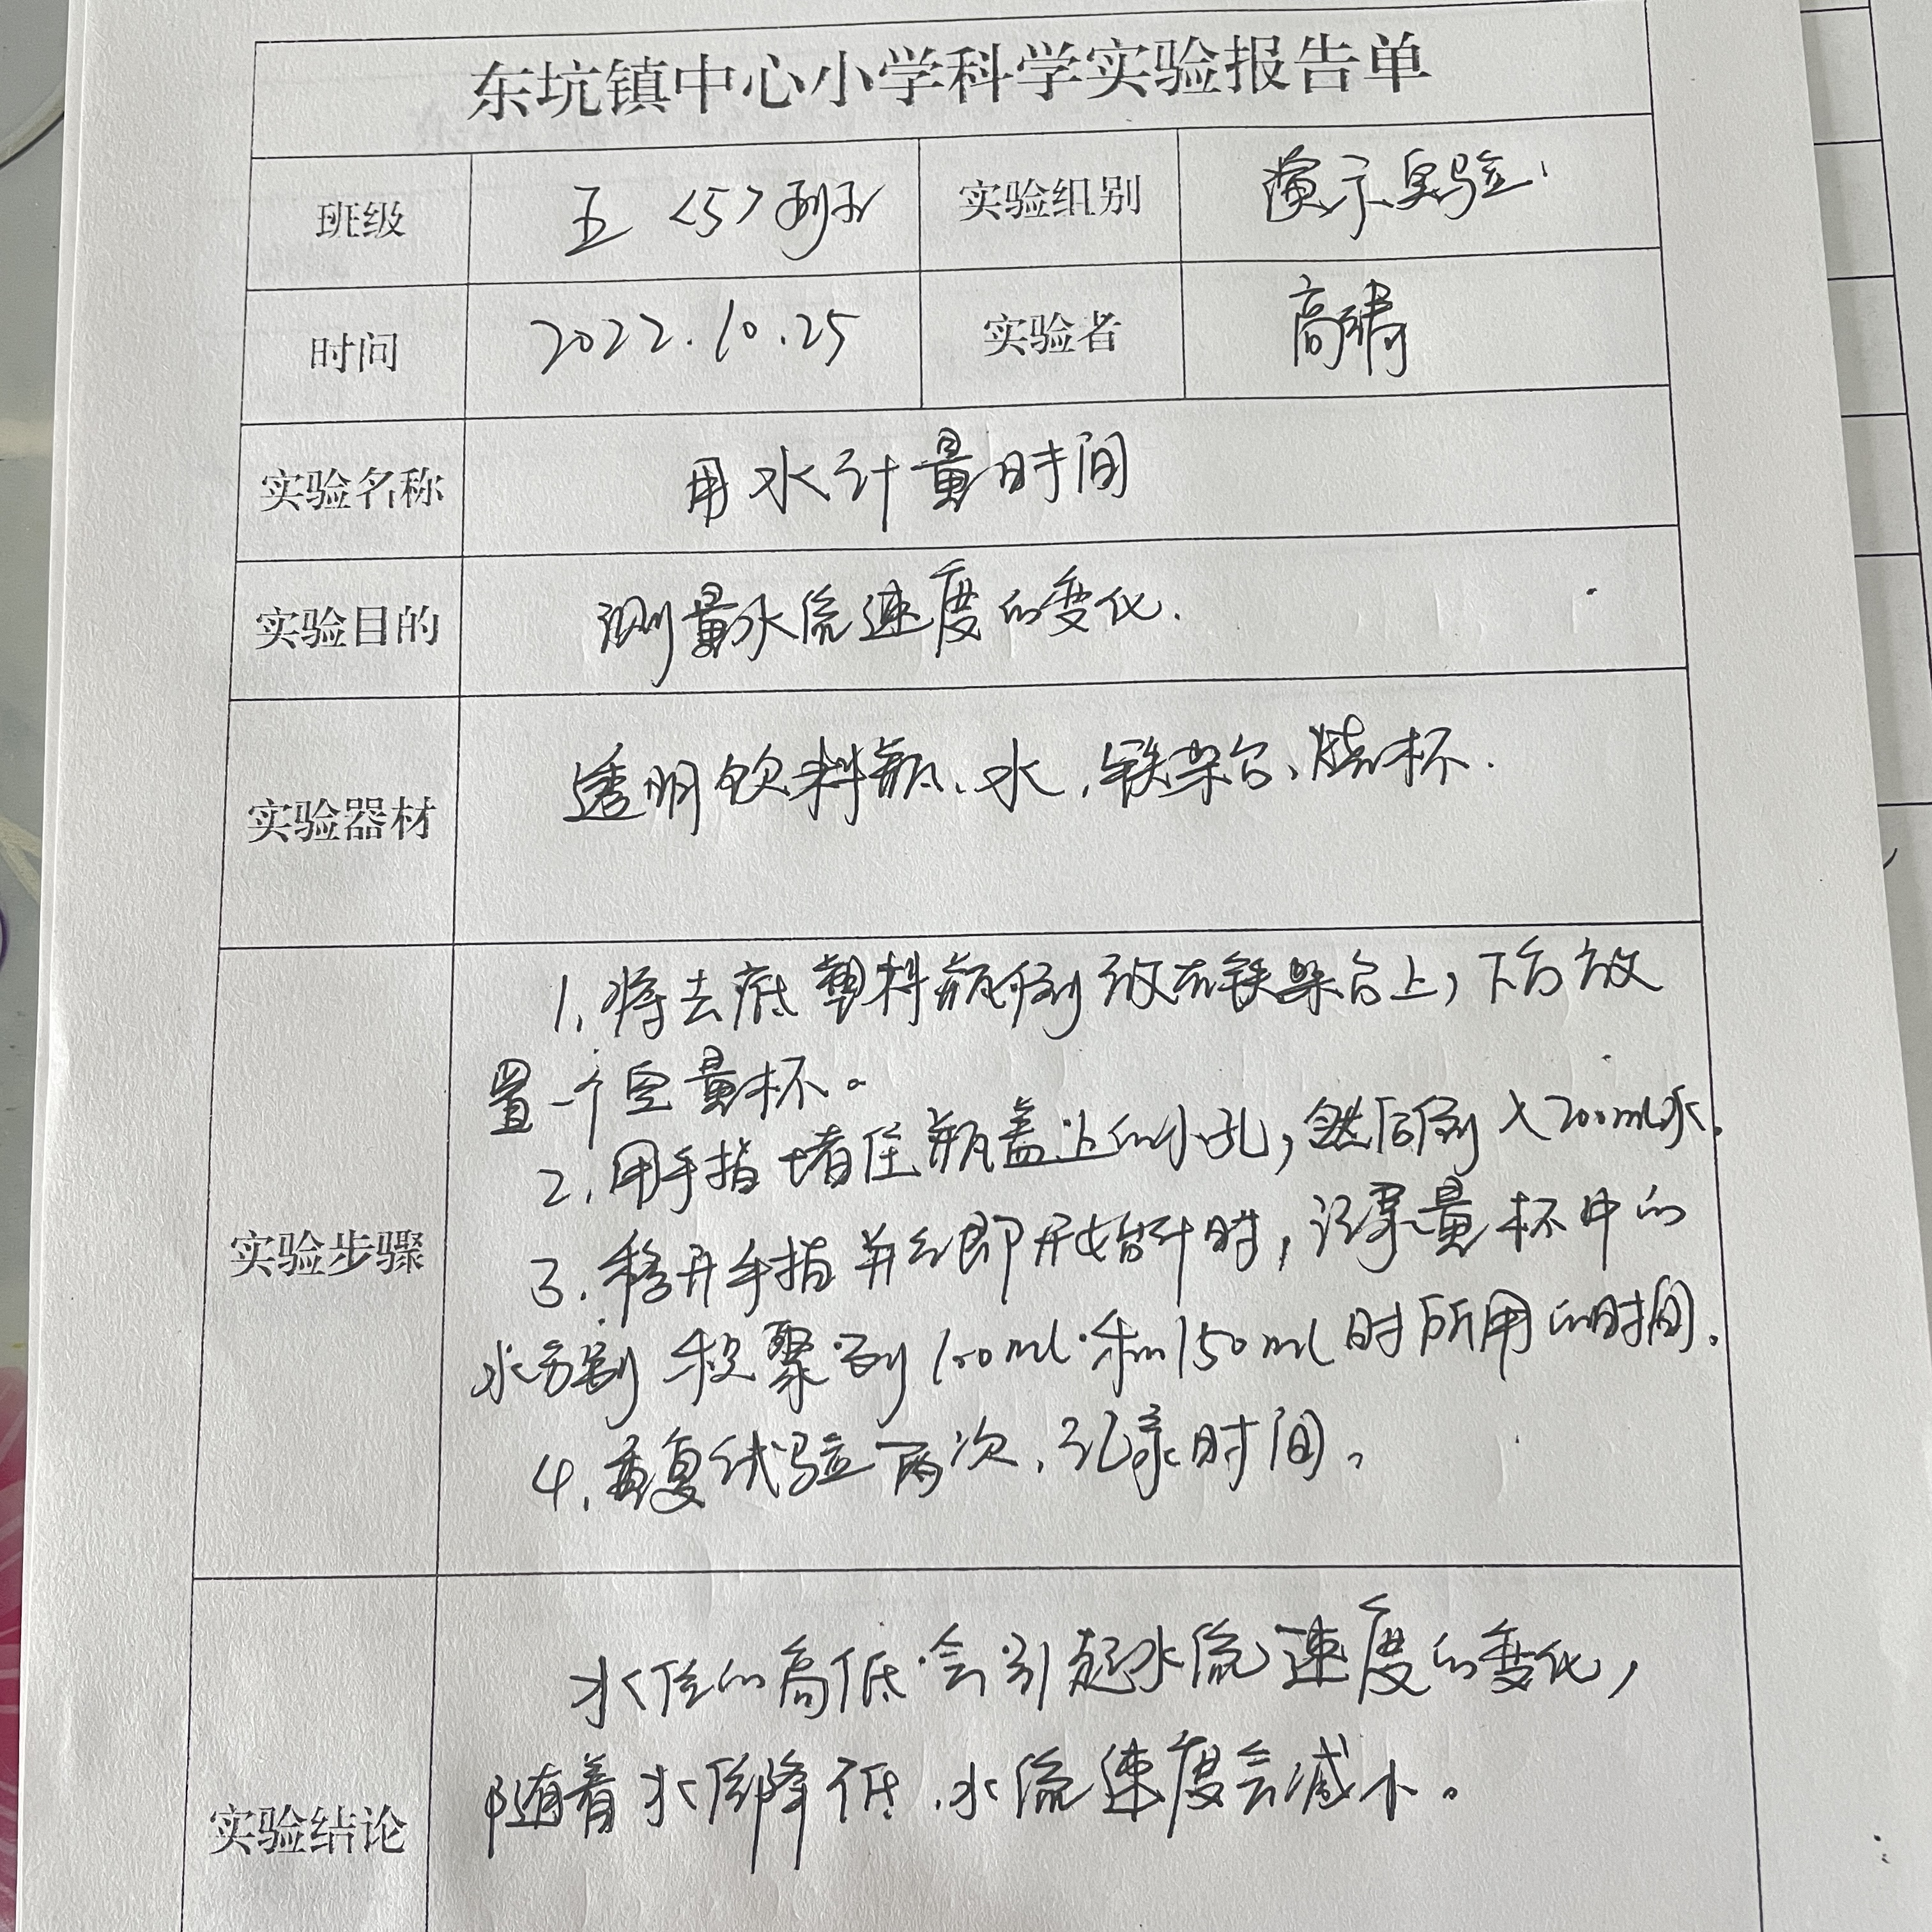 东坑镇中心小学科学实验报告单
班级 五〈5〉班 实验组别 演示实验
时间 2022.10.25 实验者 高
实验名称 用水计量时间
实验目的 测量水流速度的变化.
实验器材 透明饮料瓶、水，铁架台、烧杯.
实验步骤
1、将去底塑料瓶倒放在铁架台上，下方放
置一个空量杯。
2、用手指堵住瓶盖上的小孔，然后倒入200ml水。
3、移开手指并立即开始计时，记录量杯中的
水分别积聚到100ml和150ml时所用的时间。
4、重复试验两次，记录时间。
实验结论
水位的高低会引起水流速度的变化，
随着水位降低，水流速度会减小。